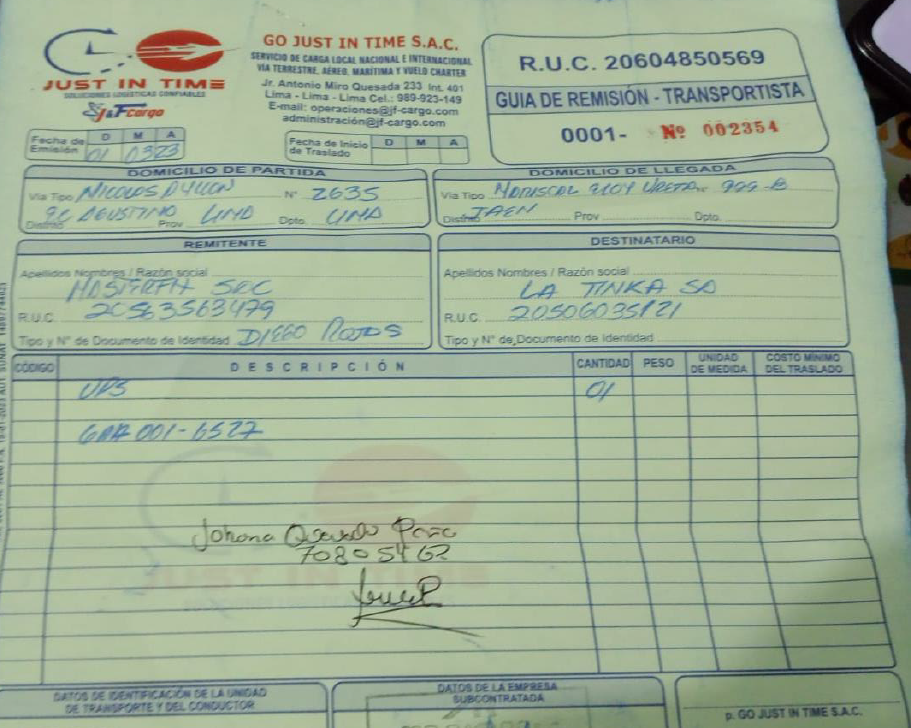 JUST IN TIME
SOLUCIONES LOGÍSTICAS CONFIABLES
J&F Cargo
GO JUST IN TIME S.A.C.
SERVICIO DE CARGA LOCAL NACIONAL E INTERNACIONAL
VIA TERRESTRE, AÉREO, MARÍTIMA Y VUELO CHARTER
Jr. Antonio Miro Quesada 233 Int. 401
Lima - Lima - Lima Cel.: 989-923-149
E-mail: operaciones@jf-cargo.com
administración@jf-cargo.com
R.U.C. 20604850569
GUIA DE REMISIÓN - TRANSPORTISTA
0001- Nº 002354
Fecha de Emisión D M A
01 03 23
Fecha de Inicio de Traslado D M A
DOMICILIO DE PARTIDA
Vía Tipo NICOLAS AYLLON Nº 2635
EL AGUSTINO LIMA LIMA
Distrito Prov. Dpto.
DOMICILIO DE LLEGADA
Vía Tipo MARISCAL ELOY URETA 999-B
Distrito JAEN Prov. Dpto.
REMITENTE
Apellidos Nombres / Razón social
SRL
R.U.C. 20563563479
Tipo y N° de Documento de Identidad DIEGO ROJAS
DESTINATARIO
Apellidos Nombres / Razón social
LA TINKA SA
R.U.C. 20506035121
Tipo y N° de Documento de Identidad
CÓDIGO DESCRIPCIÓN CANTIDAD PESO UNIDAD DE MEDIDA COSTO MÍNIMO DEL TRASLADO
UPS 01
001-6527
Johana
70805462
JUST IN TIME
DATOS DE IDENTIFICACIÓN DE LA UNIDAD
DE TRANSPORTE Y DEL CONDUCTOR
DATOS DE LA EMPRESA
SUBCONTRATADA
p. GO JUST IN TIME S.A.C.